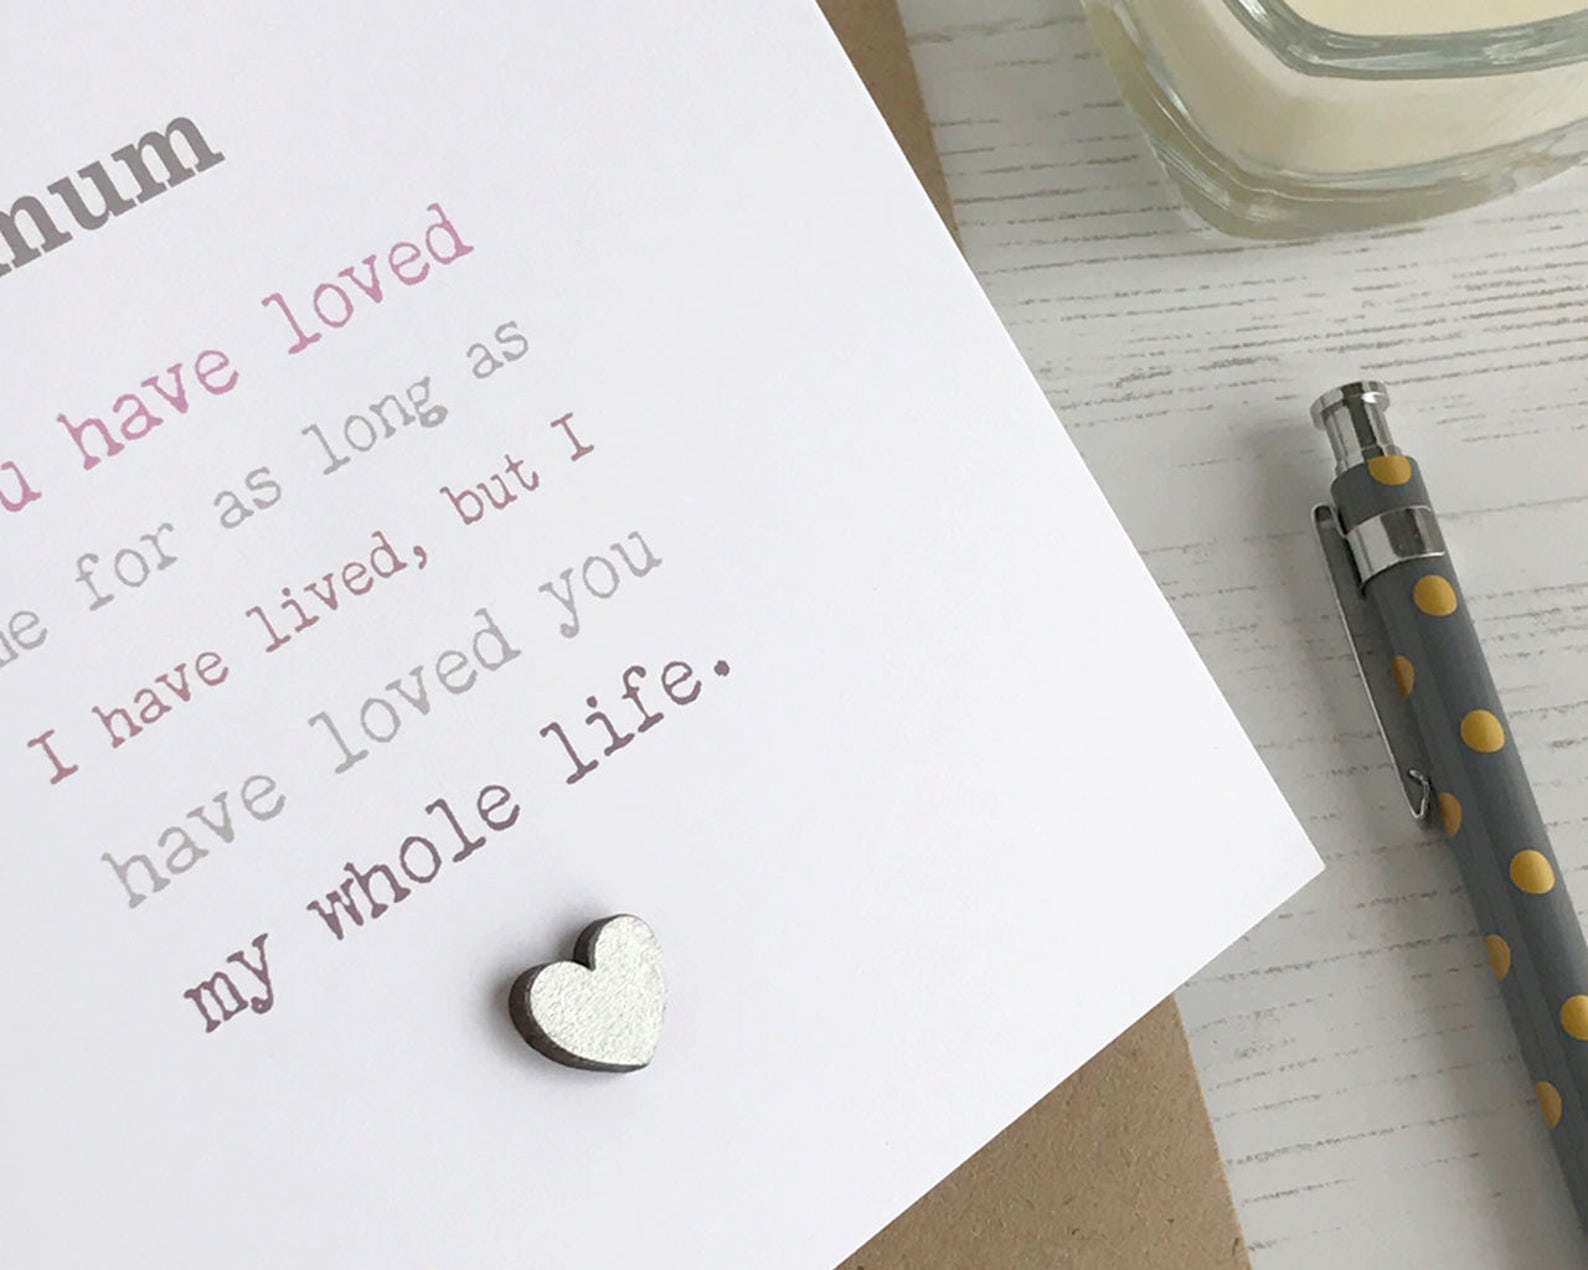 mum
have loved
for as long as
I have lived, but I
have loved you
my whole life.